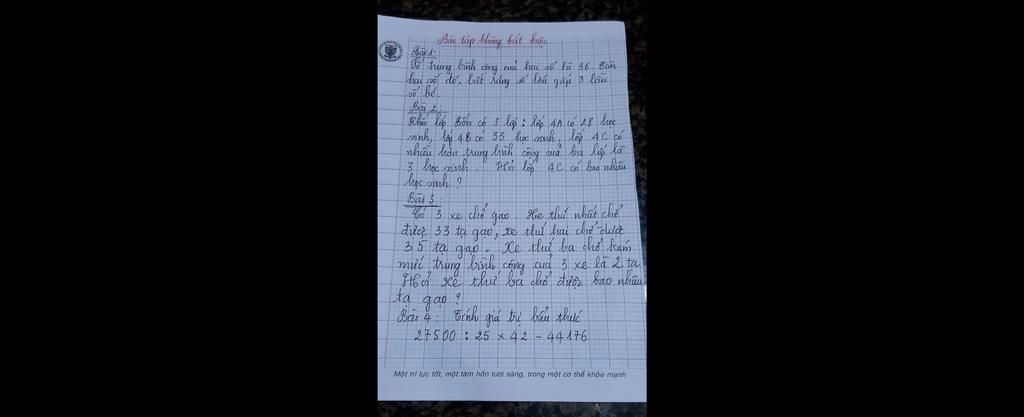 Bài tập không bắt buộc
Bài 1:
Số trung bình cộng của hai số là 36. Tìm
hai số đó, biết rằng số lớn gấp 3 lần
số bé.
Bài 2:
Khối lớp Bốn có 3 lớp: lớp 4A có 28 học
sinh, lớp 4B có 33 học sinh, lớp 4C có
nhiều hơn trung bình cộng của ba lớp là
3 học sinh. Hỏi lớp 4C có bao nhiêu
học sinh?
Bài 3:
Có 3 xe chở gạo. Xe thứ nhất chở
được 33 tạ gạo, xe thứ hai chở được
35 tạ gạo. Xe thứ ba chở kém
mức trung bình cộng của 3 xe là 2 tạ
Hỏi xe thứ ba chở được bao nhiêu
tạ gạo?
Bài 4: Tính giá trị biểu thức
27500 : 25 × 42 - 44176
Một trí lực tốt, một tâm hồn tươi sáng, trong một cơ thể khỏe mạnh